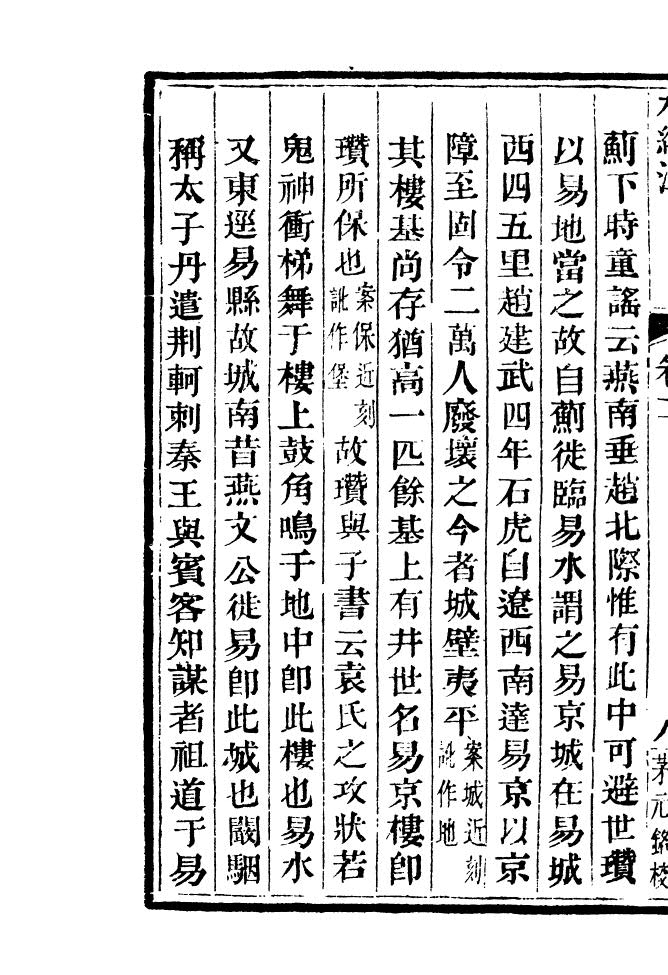 薊下時童謠云燕南垂趙北際惟有此中可避世瓚
以易地當之故自薊徙臨易水謂之易京城在易城
西四五里趙建武四年石虎自遼西南達易京以京
障至固令二萬人廢壞之今者城壁夷平案城近刻訛作地
其樓基尚存猶高一匹餘基上有井世名易京樓卽
瓚所保也案保近刻訛作堡故瓚與子書云袁氏之攻狀若
鬼神衝梯舞于樓上鼓角鳴于地中卽此樓也易水
又東逕易縣故城南昔燕文公徙易卽此城也闞駰
稱太子丹遣荆軻刺秦王與賓客知謀者祖道于易